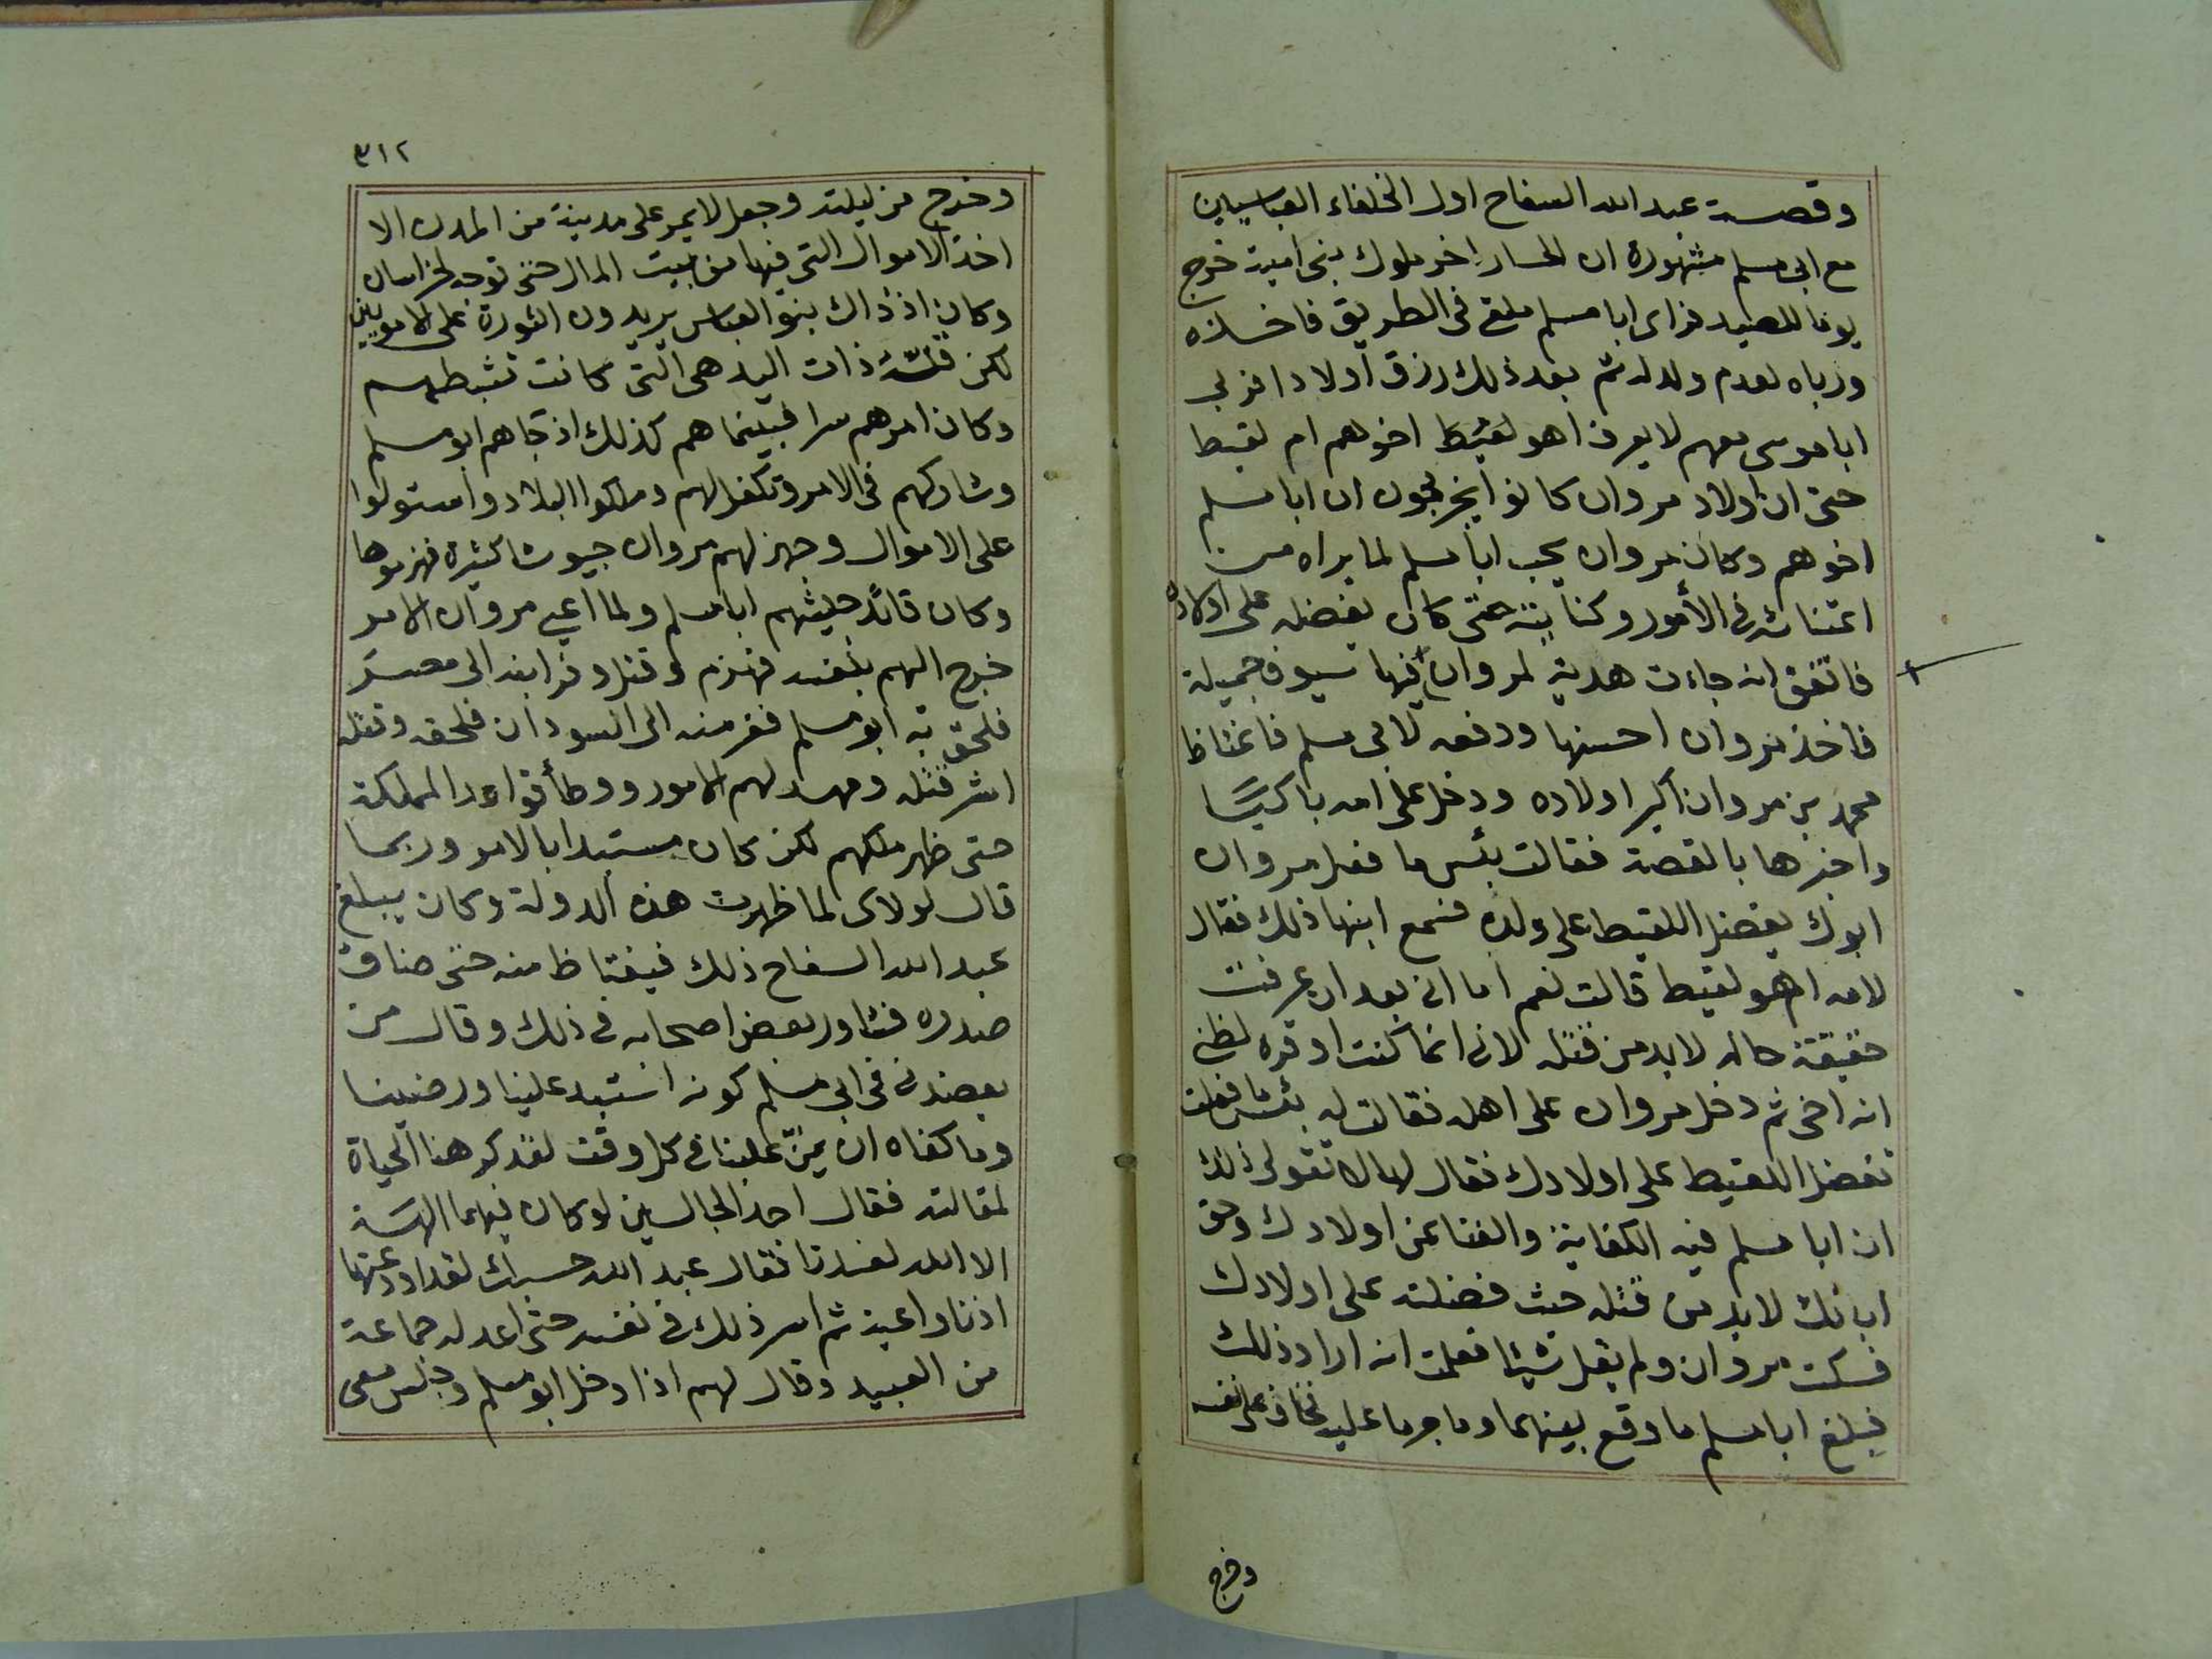 وقصة عبد الله السفاح اول الخلفاء العباسيين
مع ابي مسلم مشهورة ان الحمار اخر ملوك بني امية خرج
يوما للصيد فراى ابا مسلم ملقى فى الطريق فاخذه
ورباه لعدم ولد له ثم بعد ذلك رزق اولادا فربي
ابا موسى معهم لا يعرف اهو لقيط اخوهم ام لقيط
حتى ان اولاد مروان كانوا ان ابا مسلم
اخوهم وكان مروان يحب ابا مسلم لما يراه من
اعتنائه فى الأمور وكفايته حتى كان يفضله على اولاده
فاتفق انه جاءت هدية لمروان فيها سيوف جميلة
فاخذ مروان احسنها ودفعه لابى مسلم فاغتاظ
محمد بن مروان اكبر اولاده ودخل على امه باكيا
واخبرها بالقصة فقالت بئس ما فعل مروان
ابوك يفضل اللقيط على ولده فسمع ابنها ذلك فقال
لامه اهو لقيط قالت نعم اما انى بعد ان عرفت
حقيقة حاله لا بد من قتله لانى انما كنت اوقره لظني
انه اخى ثم دخل مروان على اهله فقالت له بئس ما فعلت
تفضل اللقيط على اولادك فقال لها لا تقولى ذلك
ان ابا مسلم فيه الكفاية والغنا عن اولادك وحق
ابائك لابد من قتله حيث فضلته على اولادك
فسكت مروان ولم يقل شيئا فعلمت انه اراد ذلك
فبلغ ابا مسلم ما وقع بينهما وما جرما عليه فخاف على نفسه
وخرج
٣١٢
وخرج من ليلته وجعل لا يمر على مدينة من المدن الا
اخذ الاموال التى فيها من بيت المال حتى توجه لخراسان
وكان اذ ذاك بنو العباس يريدون الثورة على الامويين
لكن قلة ذات اليد هى التى كانت تثبطهم
وكان امرهم سرا فبينما هم كذلك اذ جاهم ابو مسلم
وشاركهم فى الامر وتكفل لهم وملكوا البلاد واستولوا
على الاموال وجهز لهم مروان جيوشا كثيرة فهزموها
وكان قائد جيشهم ابا مسلم ولما اعيي مروان الامر
خرج اليهم بنفسه فهزم وقتل وفر ابنه الى مصر
فلحق به ابو مسلم ففر منه الى السودان فلحقه وقتله
اشر قتله ومهد لهم الامور ووطأ قواعد المملكة
حتى ظهر ملكهم لكن كان مستبدا بالامر وربما
قال لولاى لما ظهرت هذه الدولة وكان يبلغ
عبد الله السفاح ذلك فيغتاظ منه حتى ضاق
صدره فشاور بعض اصحابه فى ذلك وقال من
يعضدنى فى ابى مسلم كونه استبد علينا ورضينا
وما كفاه ان يمنّ علينا فى كل وقت لقد كرهنا الحياة
لمقالته فقال احد الجالسين لو كان فيهما الهة
الا الله لفسدتا فقال عبد الله حسبك لقد اودعتها
اذنا واعية ثم اسر ذلك فى نفسه حتى اعد له جماعة
من العبيد وقال لهم اذا دخل ابو مسلم وجلس معى